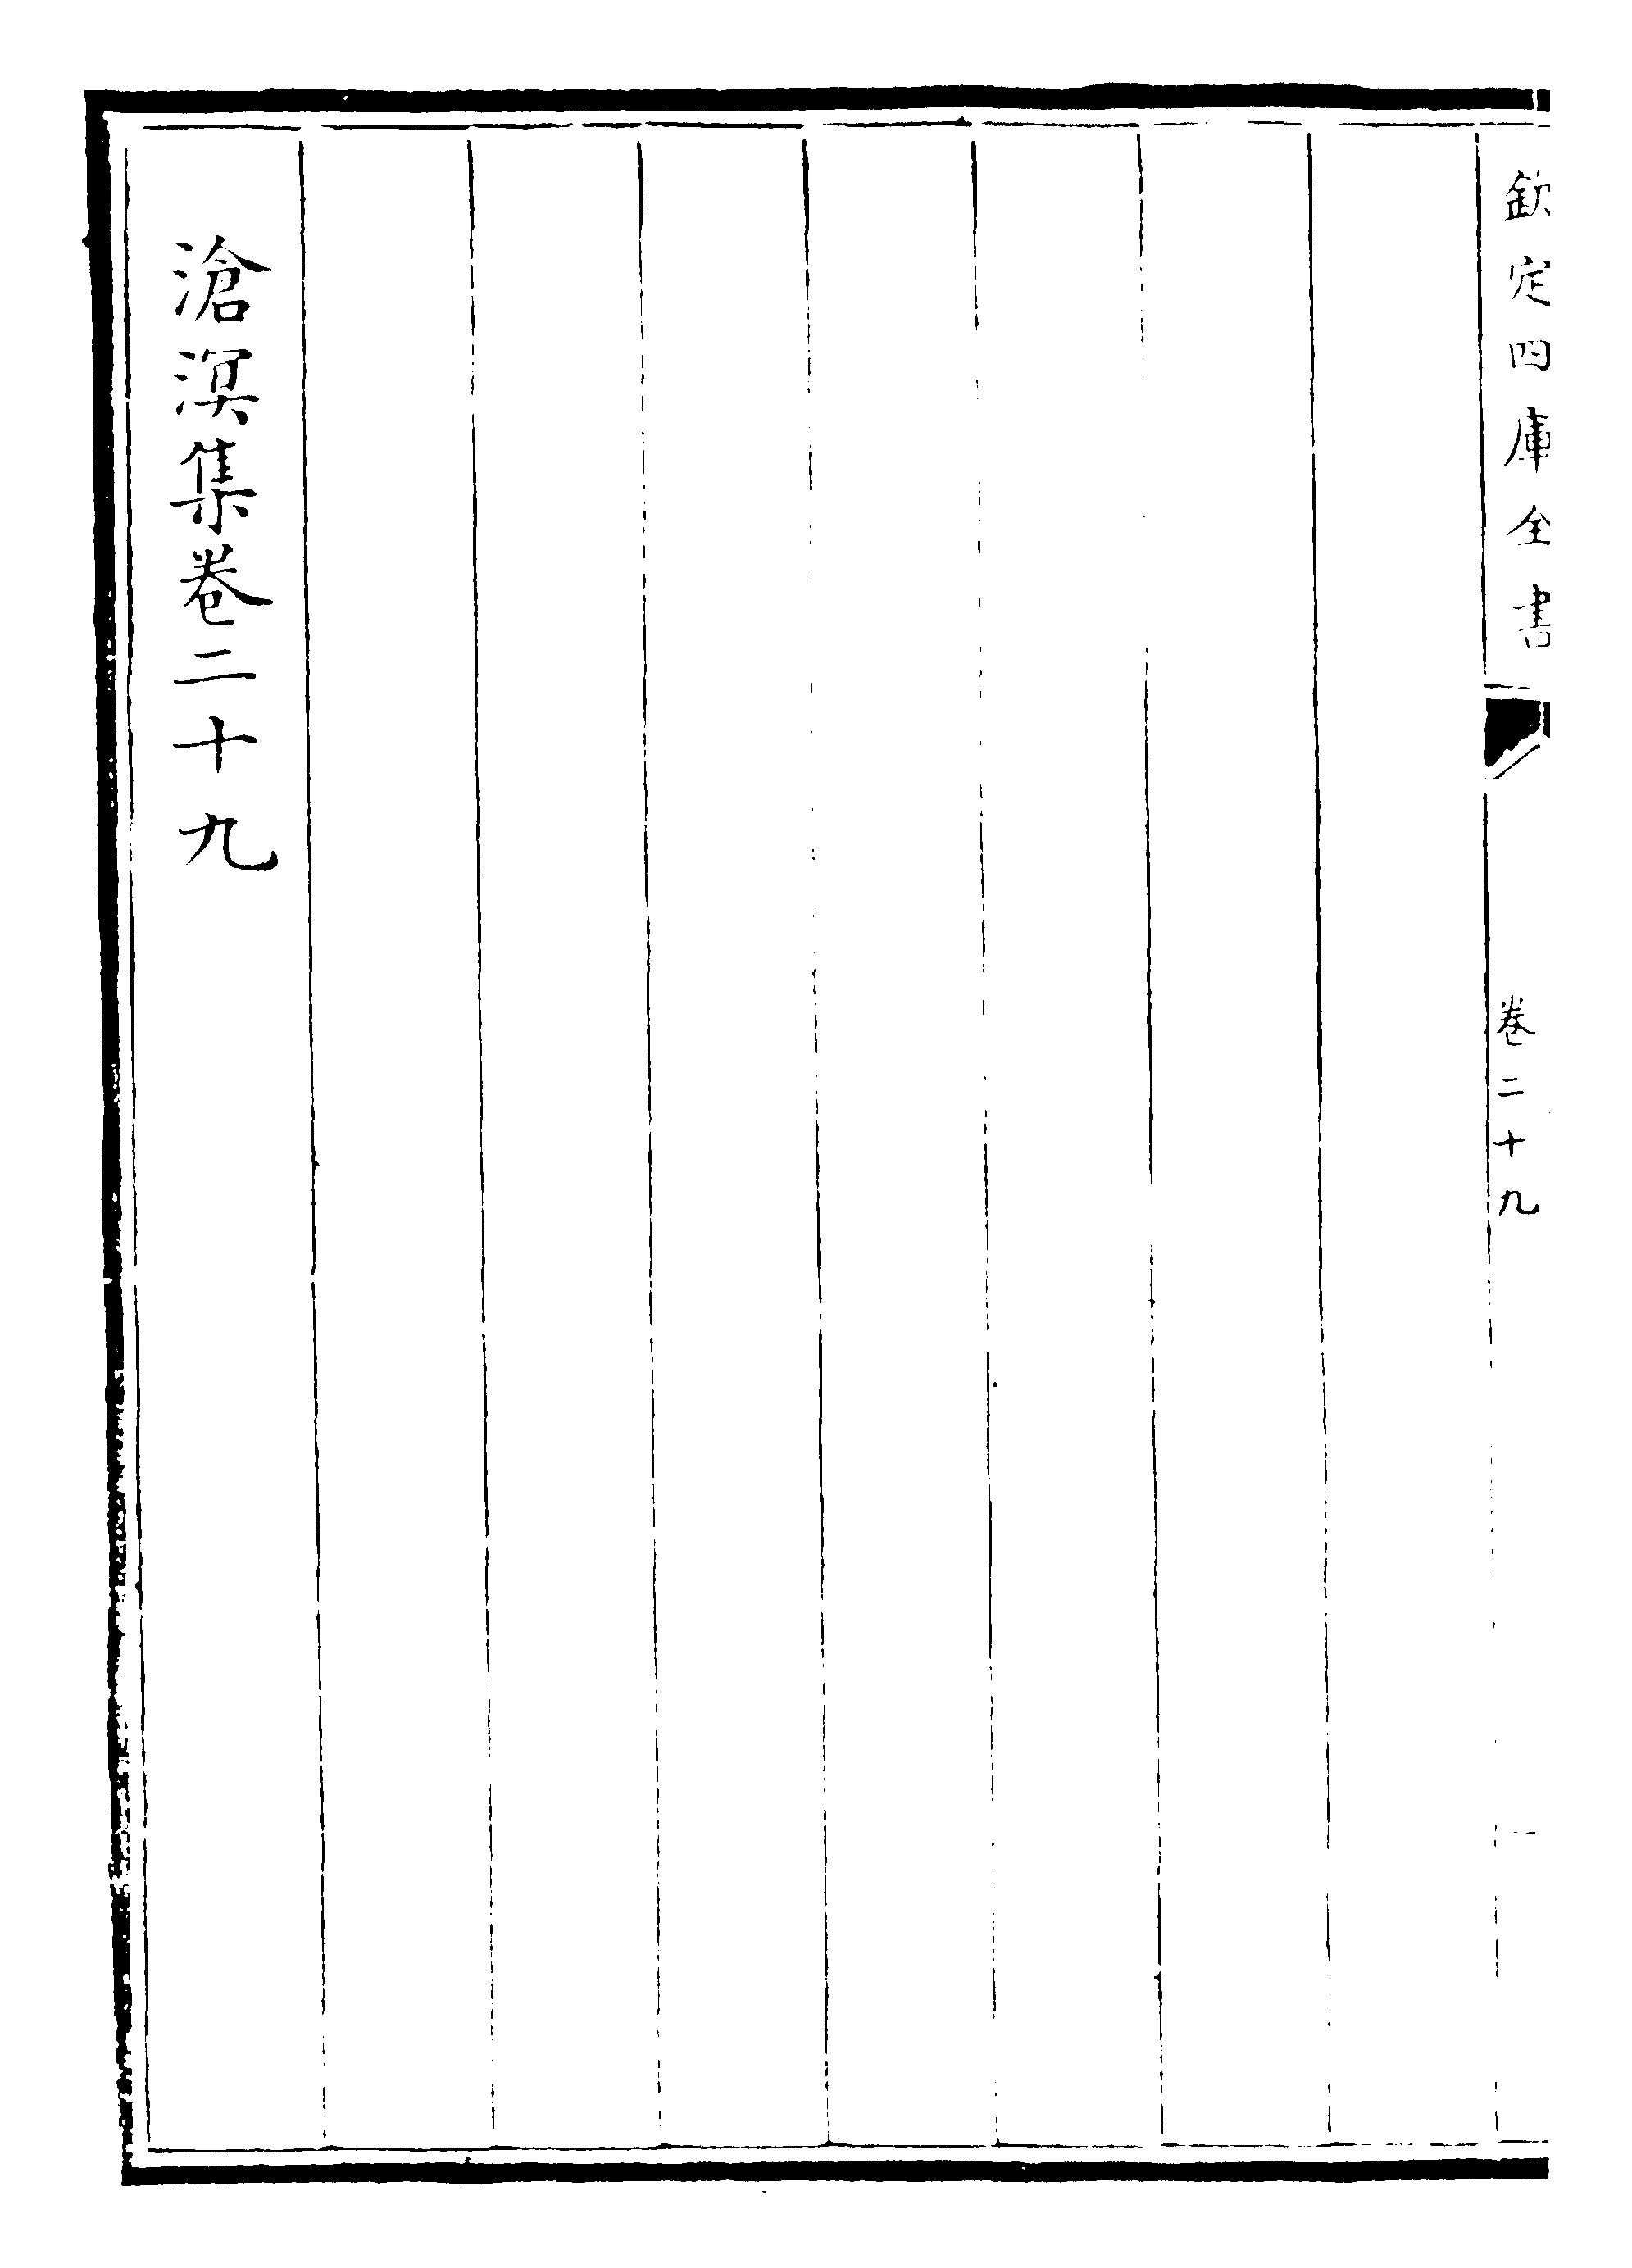 欽定四庫全書
卷二十九
一
滄溟集卷二十九